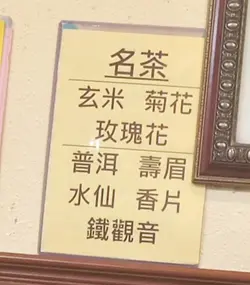 名茶
玄米 菊花
玫瑰花
普洱 壽眉
水仙 香片
鐵觀音